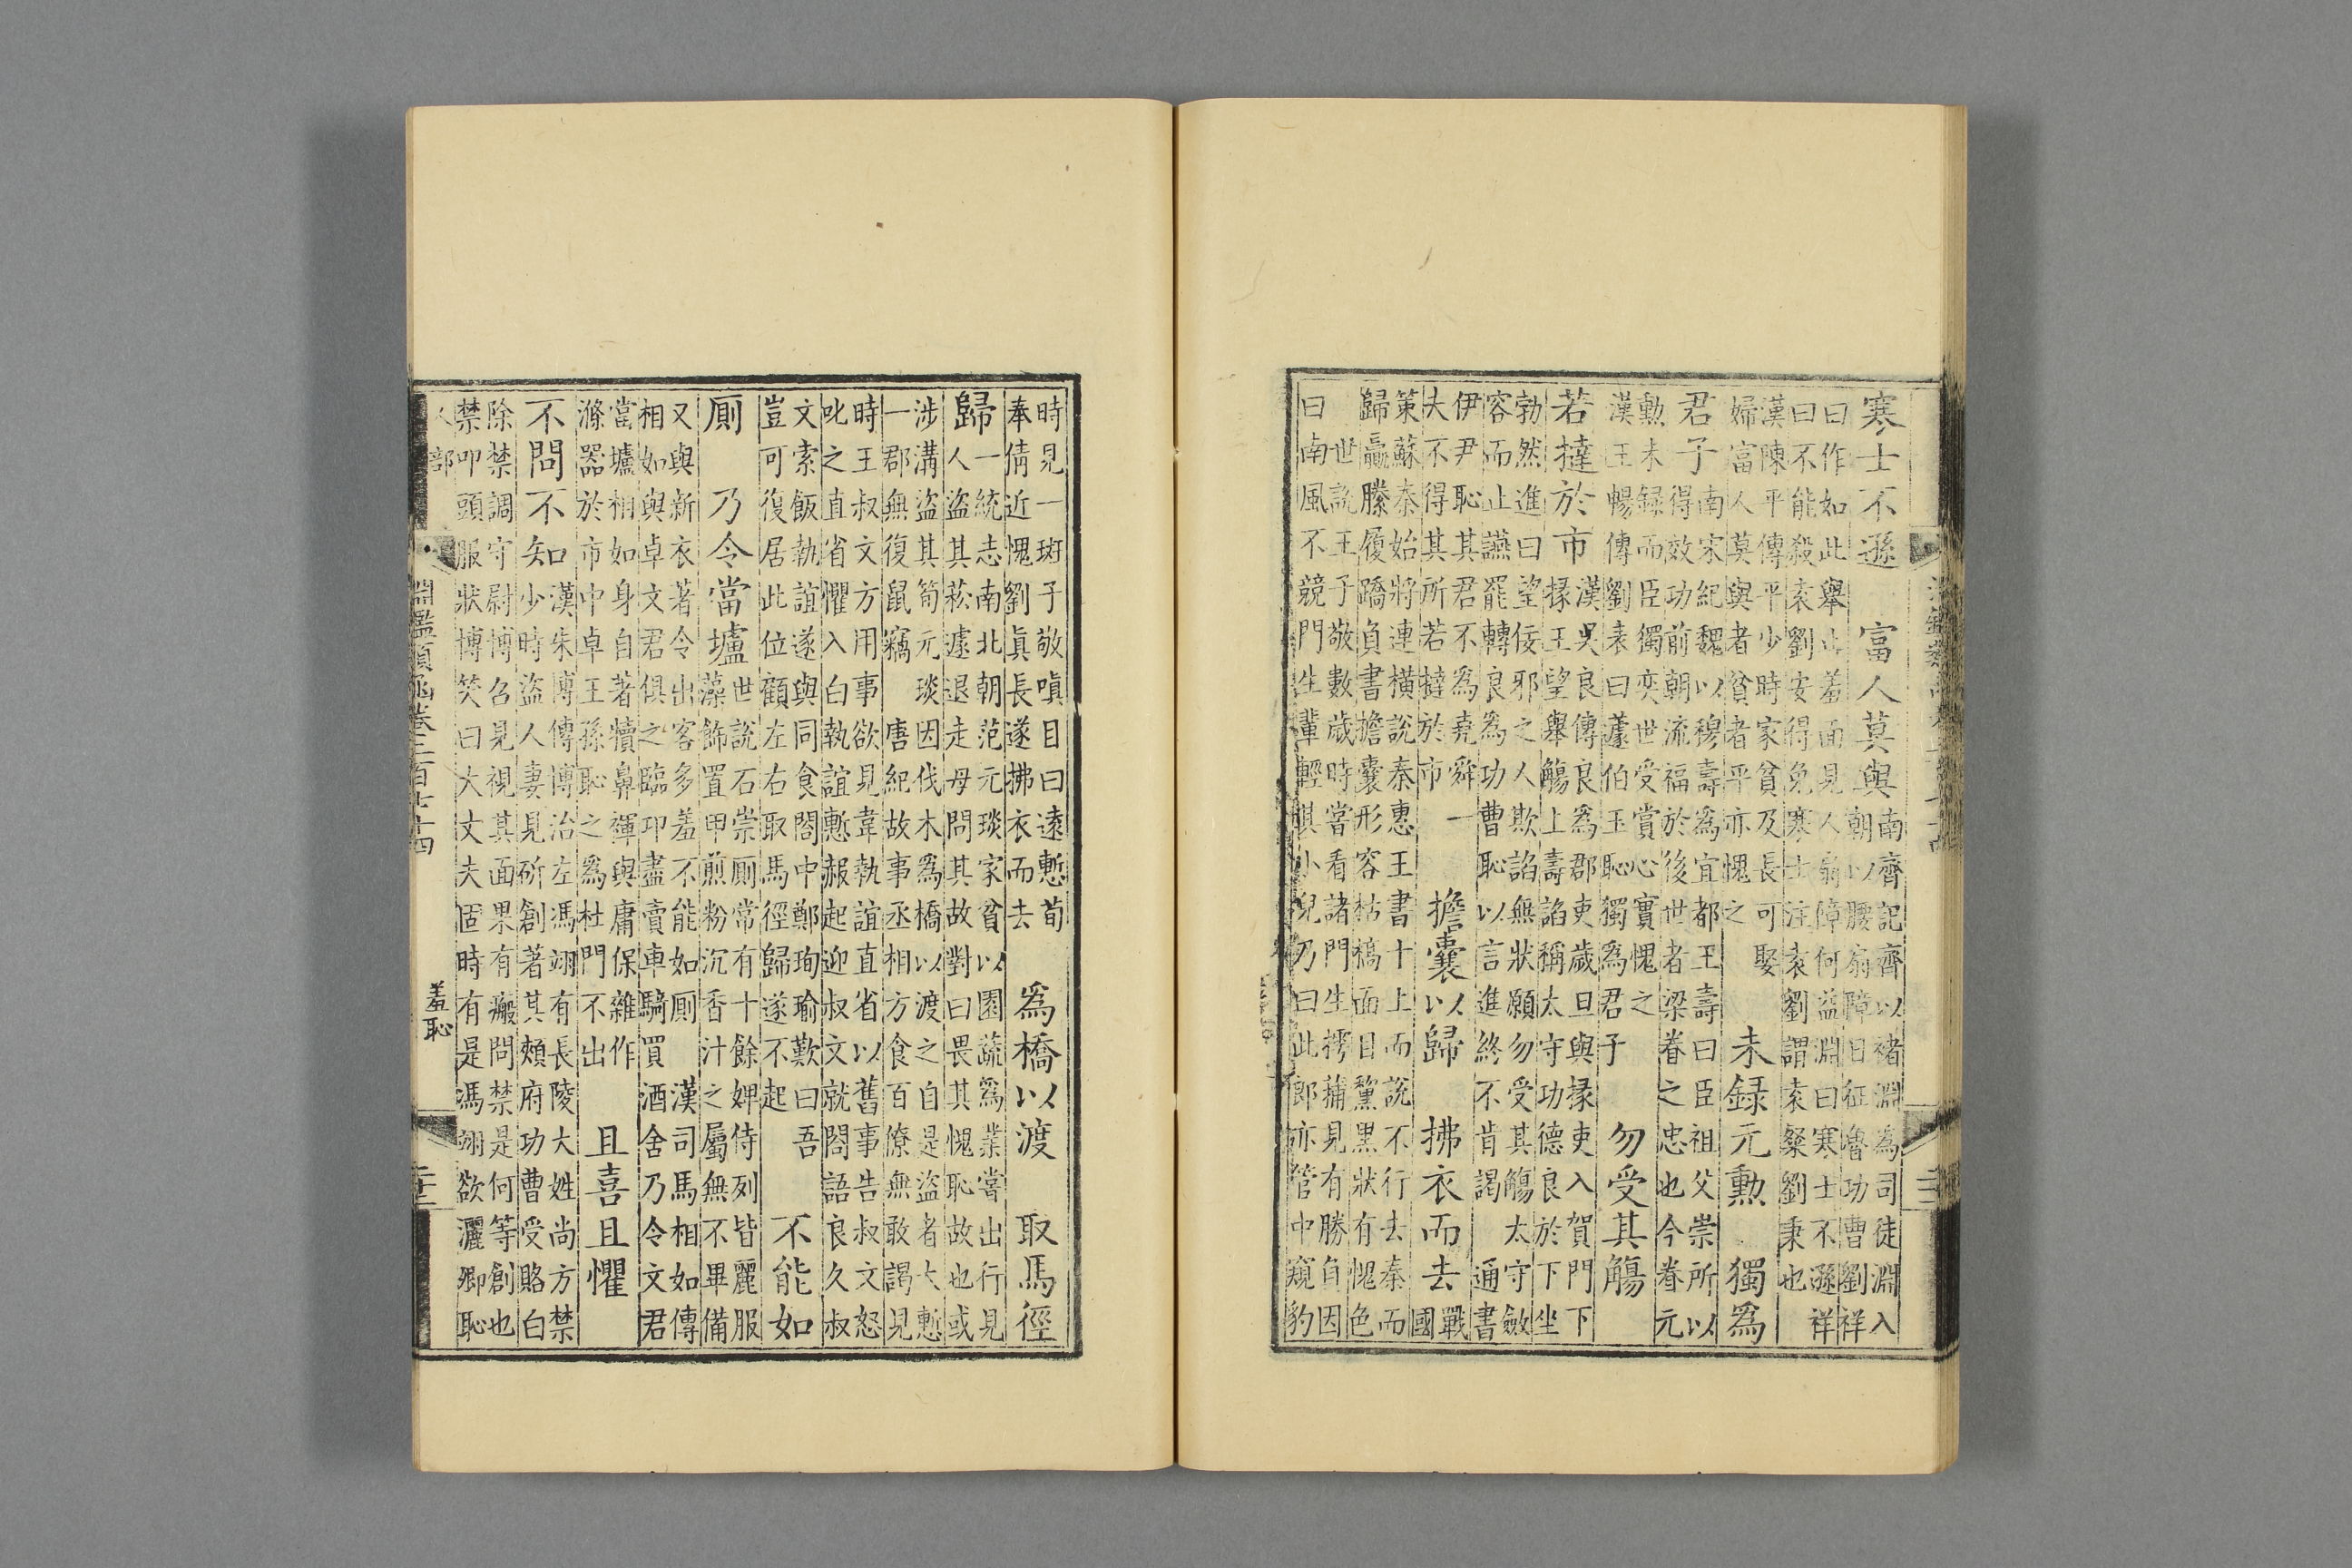 寒士不遜　富人莫與
南齊記齊以褚淵為司徒淵入
朝以腰扇障日征魯功曹劉祥
曰作如此舉止羞面見人扇障何益淵曰寒士不遜祥
曰不能殺袁劉安得免寒士注袁劉謂袁粲劉秉也
漢陳平傳平少時家貧及長可娶
婦富人莫與者貧者平亦愧之
未録元勲　獨爲
君子
南宋紀魏以穆壽爲宜都王壽曰臣祖父崇所以
得效功前朝流福於後世者梁眷之忠也今眷元
勲未録而臣獨奕世受賞心實愧之
漢王暢傳劉表曰蘧伯玉恥獨爲君子
勿受其觴
若撻於市
漢吳良傳良爲郡吏歲旦與掾吏入賀門下
掾王望舉觴上壽諂稱太守功德良於下坐
勃然進曰望佞邪之人欺諂無狀願勿受其觴太守斂
容而止讌罷轉良爲功曹恥以言進終不肯謁　通書
伊尹恥其君不爲堯舜一
大不得其所若撻於市
擔囊以歸　拂衣而去
戰
國
策蘇秦始將連橫說秦惠王書十上而說不行去秦而
歸羸縢履蹻負書擔囊形容枯槁面目黧黑狀有愧色
世說王子敬數歲時當看諸門生摴蒱見有勝負因
曰南風不競門生輩輕其小兒乃曰此郎亦管中窺豹
時見一斑子敬嗔目曰遠慙荀
奉倩近愧劉眞長遂拂衣而去
爲橋以渡　取馬徑
歸
一統志南北朝范元琰家貧以園蔬爲業嘗出行見
人盜其菘遽退走母問其故對曰畏其愧恥故也或
涉溝盜其筍元琰因伐木爲橋以渡之自是盜者大慙
一郡無復鼠竊　唐紀故事丞相方食百僚無敢謁見
時王叔文方用事欲見韋執誼直省以舊事告叔文怒
叱之直省懼入白執誼慙赧起迎叔文就閤語良久叔
文索飯執誼遂與同食閤中鄭珣瑜歎曰吾
豈可復居此位顧左右取馬徑歸遂不起
不能如
厠　乃令當壚
世說石崇厠常有十餘婢侍列皆麗服
藻飾置甲煎粉沉香汁之屬無不畢備
又與新衣著令出客多羞不能如厠　漢司馬相如傳
相如與卓文君俱之臨邛盡賣車騎買酒舍乃令文君
當壚相如身自著犢鼻褌與庸保雜作
滌器於市中卓王孫恥之爲杜門不出
且喜且懼
不問不知
漢朱博傳博治左馮翊有長陵大姓尚方禁
少時盜人妻見斫創著其頰府功曹受賂白
除禁調守尉博召見視其面果有瘢問禁是何等創也
禁叩頭服狀博笑曰大丈夫固時有是馮翊欲灑卿恥
人部　羞恥
淵鑑類函卷三百十四